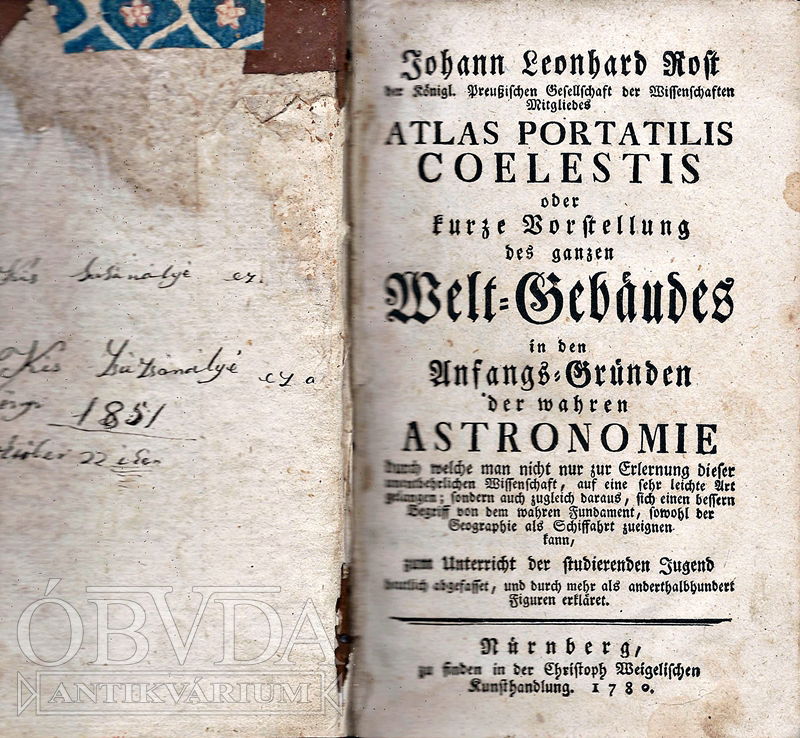 Kis
ez
Kis
ez a
1851
22
Johann Leonhard Rost
der Königl. Preußischen Gesellschaft der Wissenschaften
Mitgliedes
ATLAS PORTATILIS
COELESTIS
oder
kurze Vorstellung
des ganzen
Welt-Gebäudes
in den
Anfangs-Gründen
der wahren
ASTRONOMIE
durch welche man nicht nur zur Erlernung dieser
unentbehrlichen Wissenschaft, auf eine sehr leichte Art
gelangen; sondern auch zugleich daraus, sich einen bessern
Begriff von dem wahren Fundament, sowohl der
Geographie als Schiffahrt zueignen
kann,
zum Unterricht der studierenden Jugend
deutlich abgefasset, und durch mehr als anderthalbhundert
Figuren erkläret.
Nürnberg,
zu finden in der Christoph Weigelischen
Kunsthandlung. 1780.
ÓBVDA
ANTIKVÁRIUM